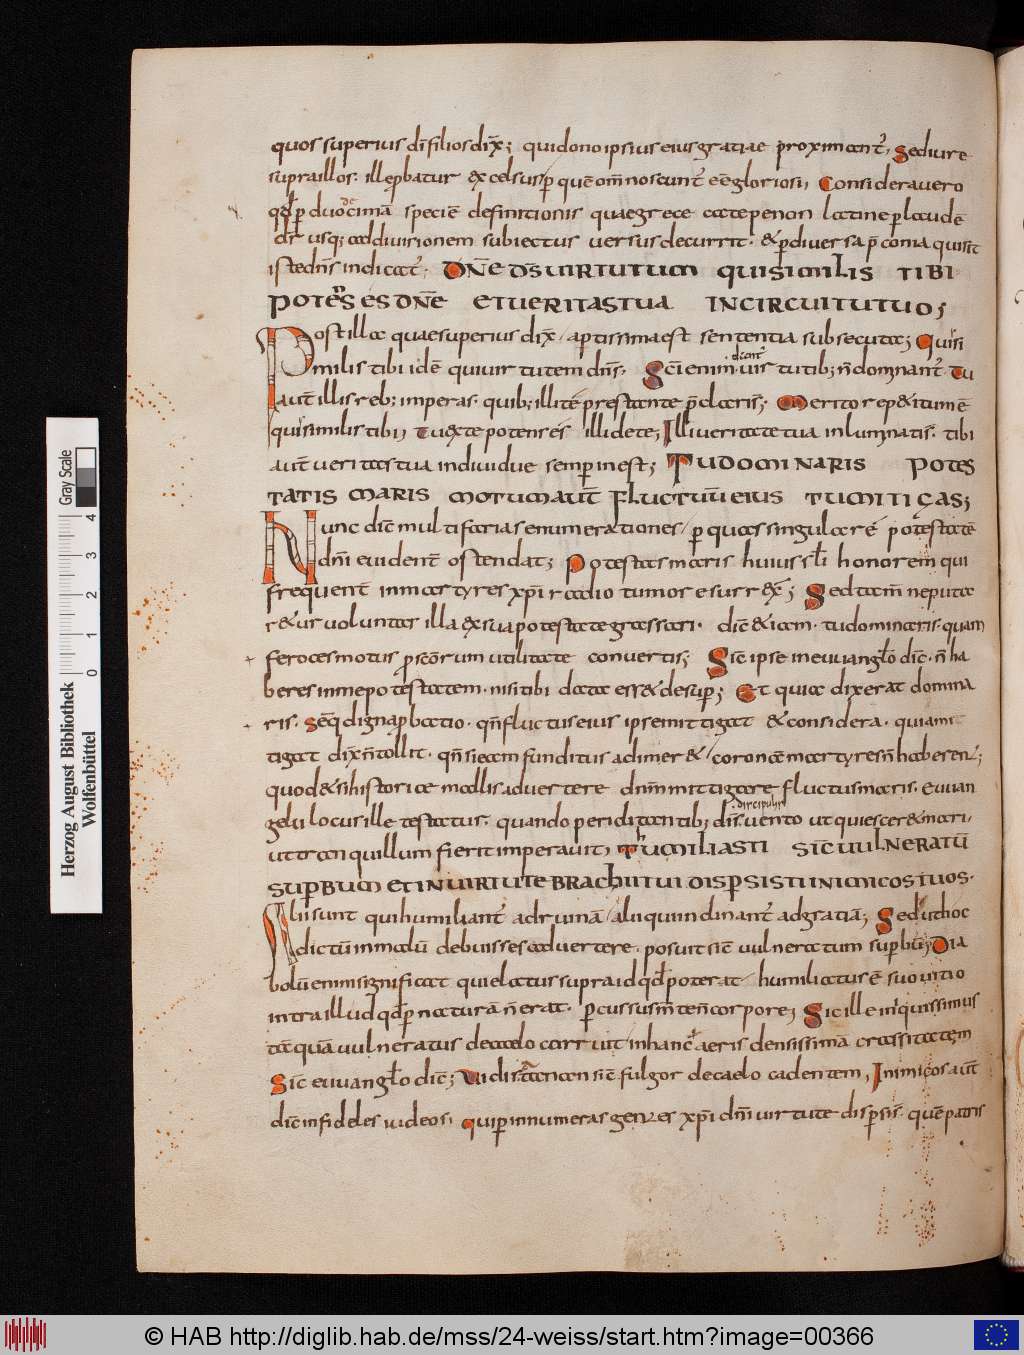 quos superius dī filios dix̄; qui dono ipsius eius gratiae proximant᷒, Sed iure
supra illos. ille p̱batur excelsus ꝑ quē om̄ noscunt᷒ eē gloriosi, Considera vero
qđ ꝑ duodecimā speciē definitionis quae grece catepenon latine ꝑ laudē
dr̄ usq; ad divisionem subiectus versus decurrit. & ꝑ diversa p̄conia quis sit
iste dn̄s indicat᷒; DN̄E DS̄ VIRTUTUM QUIS SIMILIS TIBI
POTENS ES DN̄E ET VERITAS TUA IN CIRCUITU TUO;
Post illa quae superius dix̄ / aptissima est sententia subsecuta; Quis si
milis tibi idē qui virtutem dn̄s. Sc̄i enim dicant᷒ virtutib; n̄ dominant᷒. Tu
aut̄ illis reb; imperas. quib; illi te prestante p̄claris; Merito repetitum ē
quis similis tibi, Tu ex te potens es illi de te; Illi veritate tua inluminatis. tibi
aut̄ veritas tua individue semper inest; TU DOMINARIS POTES
TATIS MARIS MOTUM AUT̄ FLUCTUŪ EIUS TU MITIGAS;
Nunc dic̄ multifarias enumerationes / ꝑ quas singularē potestatē
dn̄i evident̄ ostendat; Potestas maris huius sc̄li honorem qui
frequent̄ in martyres xp̄i radio tumore surrex̄; Sed tam̄ ne puta
retur voluntas illa ex sua potestate grassari. dic̄ etiam. tu dominaris. quam
feroces motus p̱ sc̄orum utilitate convertis; Sic̄ ipse in euuanglo dic̄. n̄ ha
beres in me potestatem. nisi tibi data esset desuꝑ; Et quia dixerat domina
ris. Seq̄ digna ꝓbatio. qn̄ fluctus eius ipse mitigat & considera. quia mi
tigat dix̄ n̄ tollit. qn̄ si eam funditus adimeret / coronā martyres n̄ haberent;
quod & si historiae mallis advertere dn̄m mitigare fluctus maris. Euuan
gelii locus ille testatus. quando periditantib; discipulis dis. vento ut quiesceret & mari.
ut tranquillum fierit imperavit, TU HUMILIASTI SIC̄ VULNERATŪ
SUPERBUM ET IN VIRTUTE BRACHII TUI DISPERSISTI INIMICOS TUOS.
Alii sunt qui humiliant᷒ ad ruinā / alii qui indinant᷒ ad gratiā; Sed ut hoc
dictū in malū debuisses advertere. posuit sic̄ vulneratum superbū; Dia
bolū enim significat qui elatus supra id qđ poterat / humiliatus ē suo vitio
intra illud qđ ꝑ naturā n̄ erat. ꝑcussus m̄ten corpore; Sic ille iniquissimus
tā quā vulneratus de caelo corruit / in hanc aeris densissimā crassitatem
Sic̄ euuanglo dic̄; Vidi satanan sic̄ fulgor de caelo cadentem, Inimicos aut̄
dic̄ infideles iudeos / qui ꝑ innumeras gentes xp̄i dn̄i virtute dispersi s̄. quē patris
Herzog August Bibliothek
Wolfenbüttel
0 1 2 3 4
Gray Scale
© HAB http://diglib.hab.de/mss/24-weiss/start.htm?image=00366